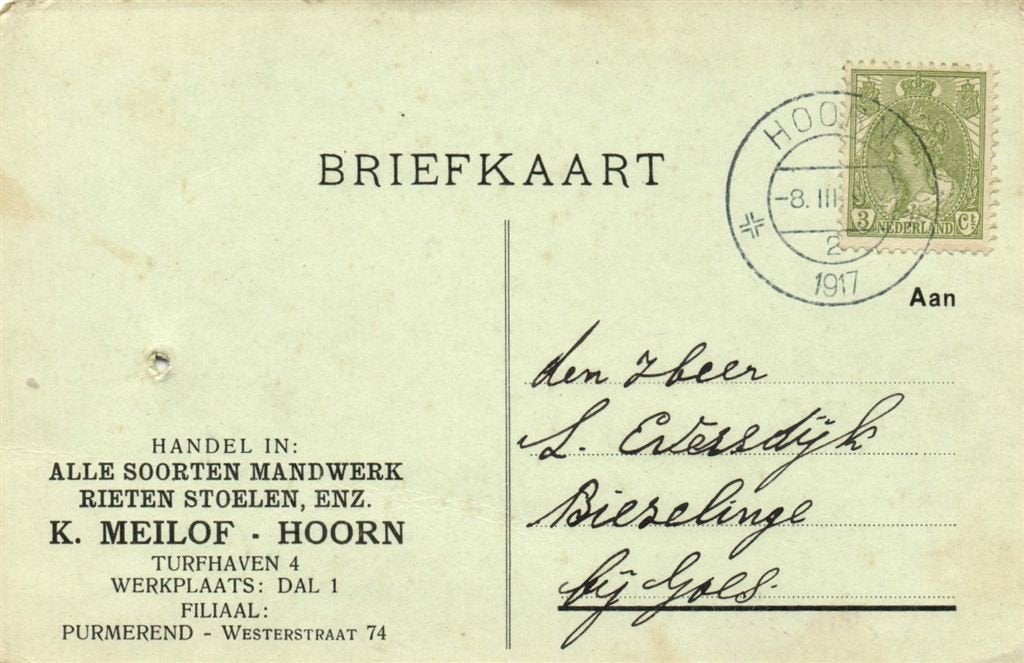 BRIEFKAART
HOORN
-8.III
2
1917
3 NEDERLAND Ct
Aan
den Heer
L. Eversdijk
Biezelinge
bij Goes.
HANDEL IN:
ALLE SOORTEN MANDWERK
RIETEN STOELEN, ENZ.
K. MEILOF - HOORN
TURFHAVEN 4
WERKPLAATS: DAL 1
FILIAAL:
PURMEREND - WESTERSTRAAT 74